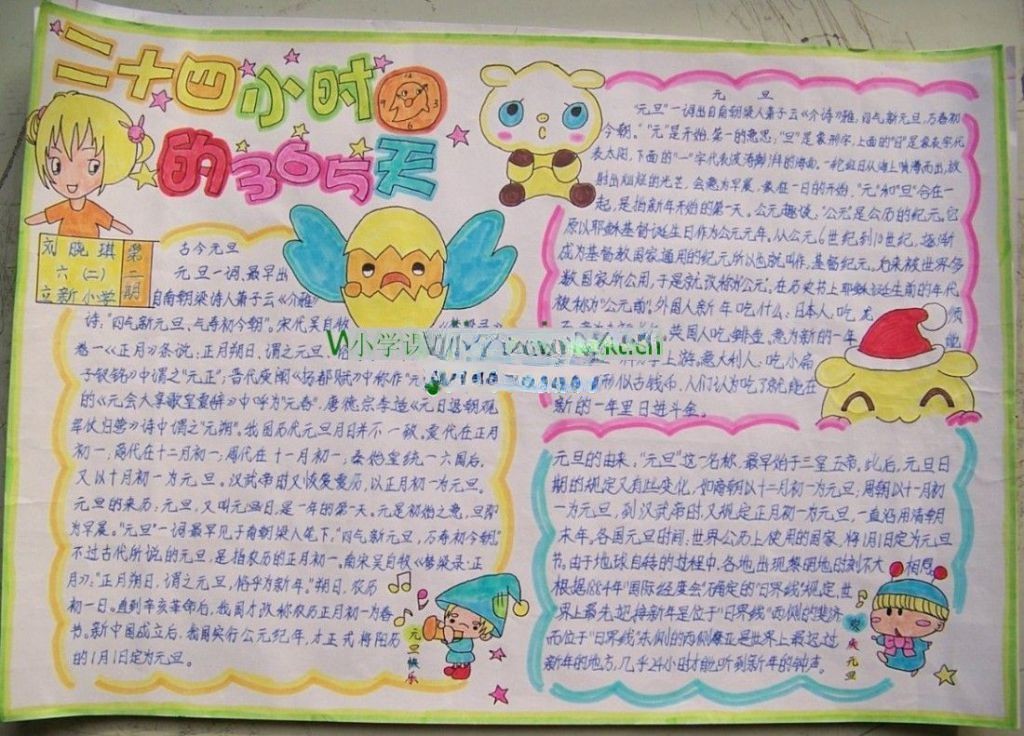 二十四小时
的365天
刘晓琪
六(二)
立新小学
第二期
古今元旦
元旦一词,最早出
自南朝梁诗人萧子云《介雅》
诗:"四气新元旦,气寿初今朝"。宋代吴自牧
卷一《正月》条说:正月朔日,谓之元旦,俗
子钗铭》中谓之"元正";晋代庾阐《扬都赋》中称作"元
的《元会大享歌皇夏辞》中呼为"元春";唐德宗李适《元日退朝观
军仗归营》诗中谓之"元朔"。我国历代元旦月日并不一致。夏代在正月
初一,商代在十二月初一,周代在十一月初一,秦始皇统一六国后,
又以十月初一为元旦。汉武帝时又恢复夏历,以正月初一为元旦。
元旦的来历:元旦,又叫元旦日,是一年的第一天。元是初始之意,旦即
为早晨。"元旦"一词最早见于南朝梁人笔下,"四气新元旦,万寿初今朝"
不过古代所说的元旦,是指农历的正月初一。南宋吴自牧《梦梁录·正
月》:"正月朔日,谓之元旦,俗乎为新年。"朔日,农历
初一日。直到辛亥革命后,我国才改称农历正月初一为春
节。新中国成立后,我国实行公元纪年,才正式将阳历
的1月1日定为元旦。
元旦快乐
元旦
"元旦"一词出自南朝梁人萧子云《介诗》雅,四气新元旦,万寿初
今朝。"元"是开始,第一的意思;"旦"是象形字,上面的"日"是象表字代
表太阳,下面的"一"字代表波涛澎湃的海面。一轮红日从海上喷薄而出,放
射出灿烂的光芒,会意为早晨,象在一日的开始,"元"和"旦"合在一
起,是指新年开始的第一天。公元趣谈:"公元"是公历的纪元。它
原以耶稣基督诞生日作为公元元年。从公元6世纪到10世纪,逐渐
成为基督教国家通用的纪元所以也就叫作,基督纪元。后来被世界多
数国家所公用,于是就改称为公元。在历史书上耶稣诞生前的年代
被称为"公元前"。外国人新年吃什么:日本人,吃龙
英国人吃鲱鱼。意为新的一年
上游。意大利人:吃小扁
形似古钱币,人们认为吃了就能在
新的一年里日进斗金。
元旦的由来,"元旦"这一名称,最早始于三皇五帝。此后,元旦日
期的规定又有些变化,如商朝以十二月初一为元旦,周朝以十一月初
一为元旦,到汉武帝时,又规定正月初一为元旦,一直沿用清朝
末年。各国元旦时间:世界公历上使用的国家,将1月1日定为元旦
节。由于地球自转的过程中,各地出现黎明地时刻不大相同。
根据1884年"国际经度会"确定的"日界线"规定,世
界上最先迎接新年是位于"日界线"西侧的斐济
而位于"日界线"东侧的西侧摩亚是世界上最迟过
新年的地方,几乎24小时才能听到新年的钟声。
欢庆元旦